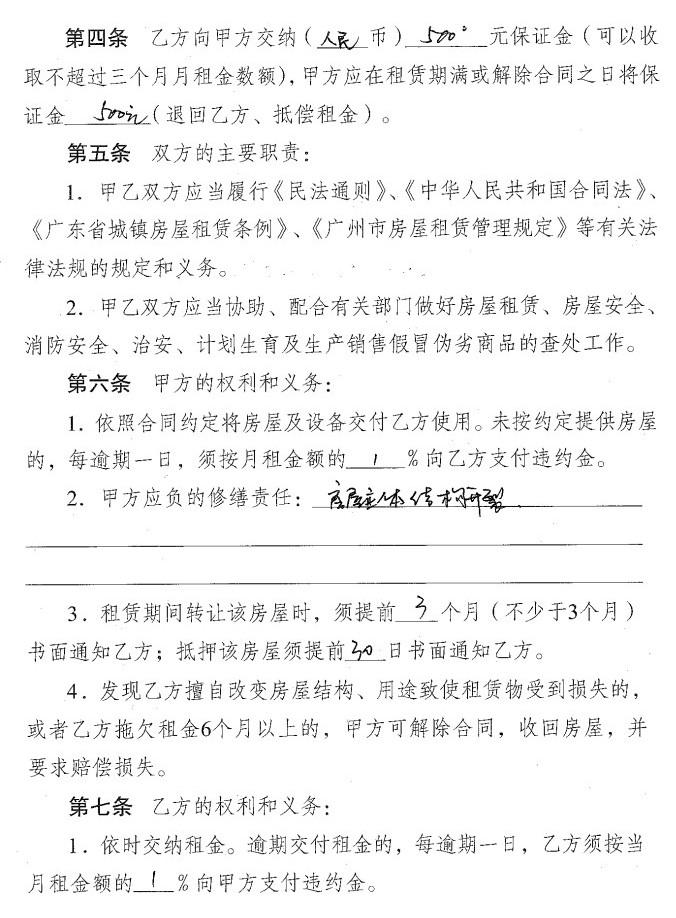 第四条 乙方向甲方交纳（人民币）500°元保证金（可以收
取不超过三个月月租金数额），甲方应在租赁期满或解除合同之日将保
证金500元（退回乙方、抵偿租金）。
第五条 双方的主要职责：
1．甲乙双方应当履行《民法通则》、《中华人民共和国合同法》、
《广东省城镇房屋租赁条例》、《广州市房屋租赁管理规定》等有关法
律法规的规定和义务。
2．甲乙双方应当协助、配合有关部门做好房屋租赁、房屋安全、
消防安全、治安、计划生育及生产销售假冒伪劣商品的查处工作。
第六条 甲方的权利和义务：
1．依照合同约定将房屋及设备交付乙方使用。未按约定提供房屋
的，每逾期一日，须按月租金额的1％向乙方支付违约金。
2．甲方应负的修缮责任：房屋主体结构开裂
3．租赁期间转让该房屋时，须提前3个月（不少于3个月）
书面通知乙方；抵押该房屋须提前30日书面通知乙方。
4．发现乙方擅自改变房屋结构、用途致使租赁物受到损失的，
或者乙方拖欠租金6个月以上的，甲方可解除合同，收回房屋，并
要求赔偿损失。
第七条 乙方的权利和义务：
1．依时交纳租金。逾期交付租金的，每逾期一日，乙方须按当
月租金额的1％向甲方支付违约金。